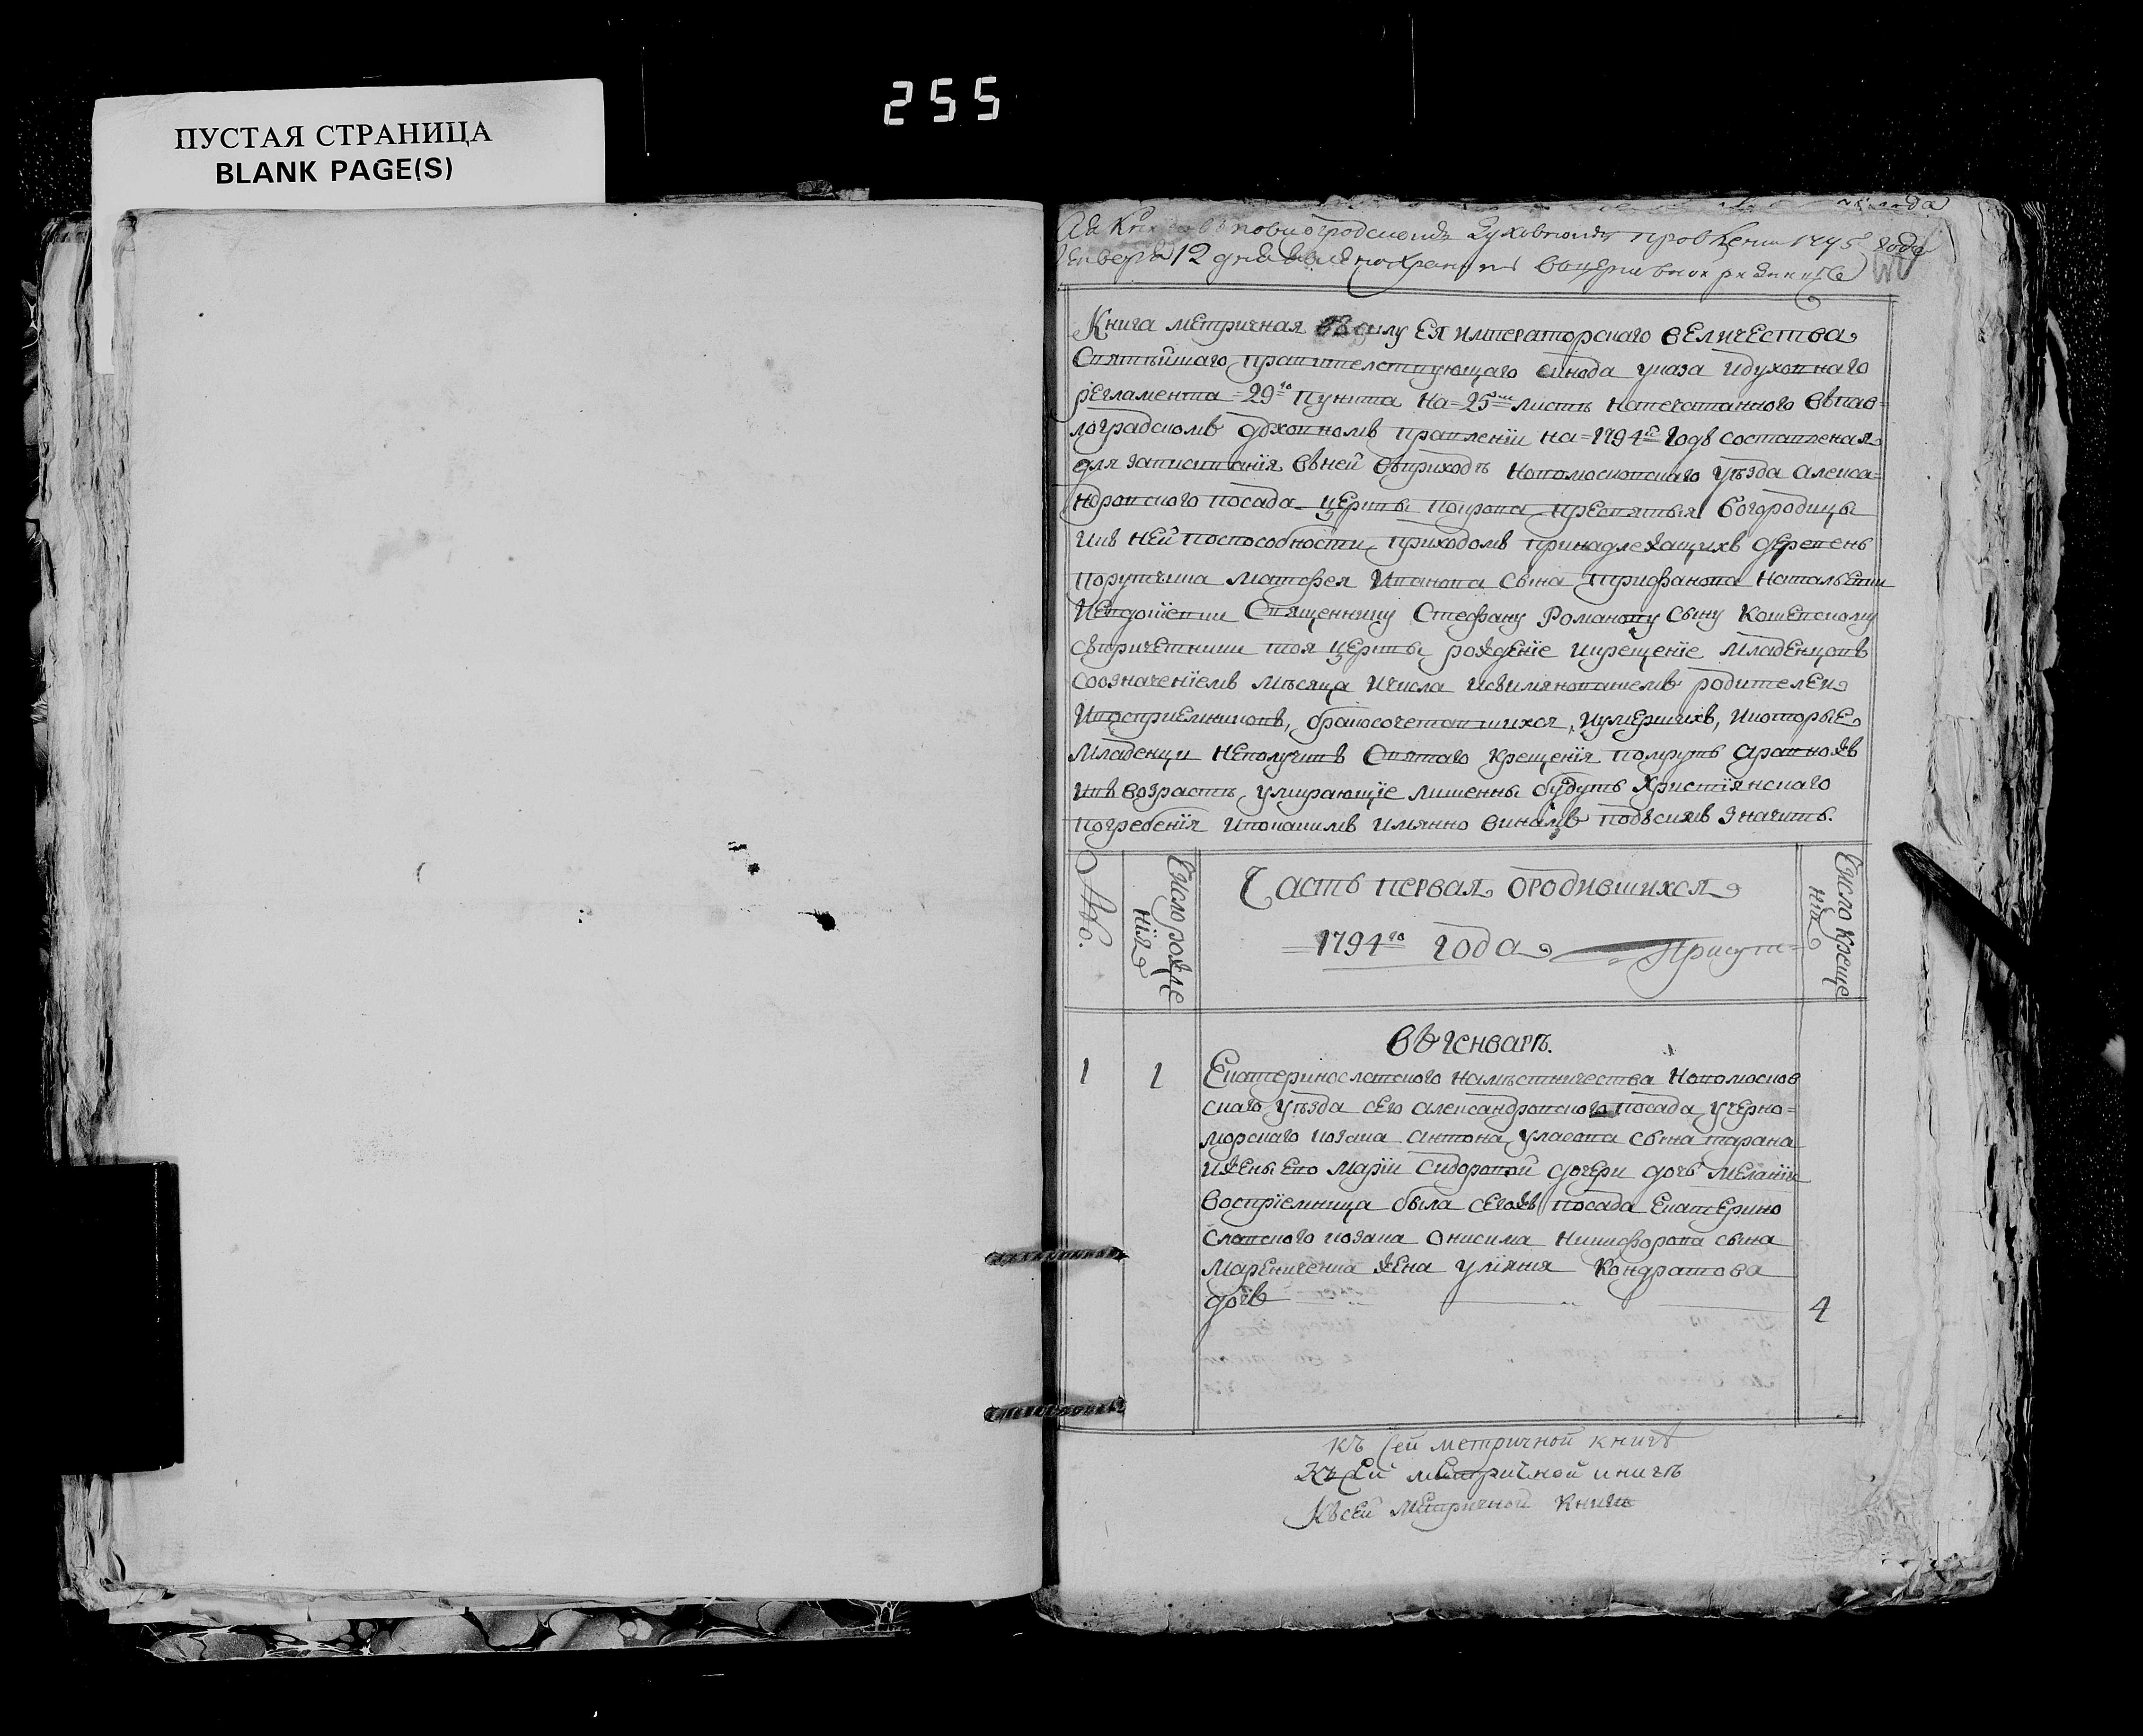 255
ПУСТАЯ СТРАНИЦА
BLANK PAGE(S)
года
духовномъ правленіи 1795 года
Генваря 12 дня
Книга метричная въ силу Ея императорскаго величества
Святѣйшаго правителствующаго синода указа идуховнаго
регламента 29го пункта на 25м листѣ напечатанного въпав=
лоградскомъ духовномъ правленіи на 1794й годъ составленая
для записыванія въней въприходѣ новомосковскаго уѣзда алекса=
ндровского посада церквы покрова пресвятыя богородицы
икъ ней поспособности приходомъ принадлежащихъ деревень
порутчика матфея Иванова сына трифанова натальевки
Иевдокіевки Священнику Стефану Романову сыну Кошевскому
съпричетники тоя церквы рожденіе икрещеніе младенцовъ
соозначеніемъ мѣсяца ичисла исъимянованиемъ родителеи
Ивосприемниковъ, бракосочетавшихся, иумершихъ, икоторые
младенци неполучивъ Святаго крещенія помрутъ аравножъ
ивъ возрастѣ умирающіе лишенны будутъ христіянскаго
погребенія ипокакимъ имянно винамъ подъсимъ значитъ.
№.
Число рожде
нія
Часть первая ородившихся
1794го года
Число Креще
нія
въ генварѣ.
1
1
Екатеринославского намѣстничества Новомосков
скаго уѣзда сего александровского посада учерно=
морскаго козака антона уласова сына тарана
ижены его маріи Сидоровой дочери дочь меланія
Воспріемница была сегожъ посада Екатерино
славского козака онисима никифорова сына
Марениченка жена уліяния Кондратова
дочь
4
къ сей метричной книгѣ
Къ сей метричной книгѣ
Къ сей метричной книгѣ